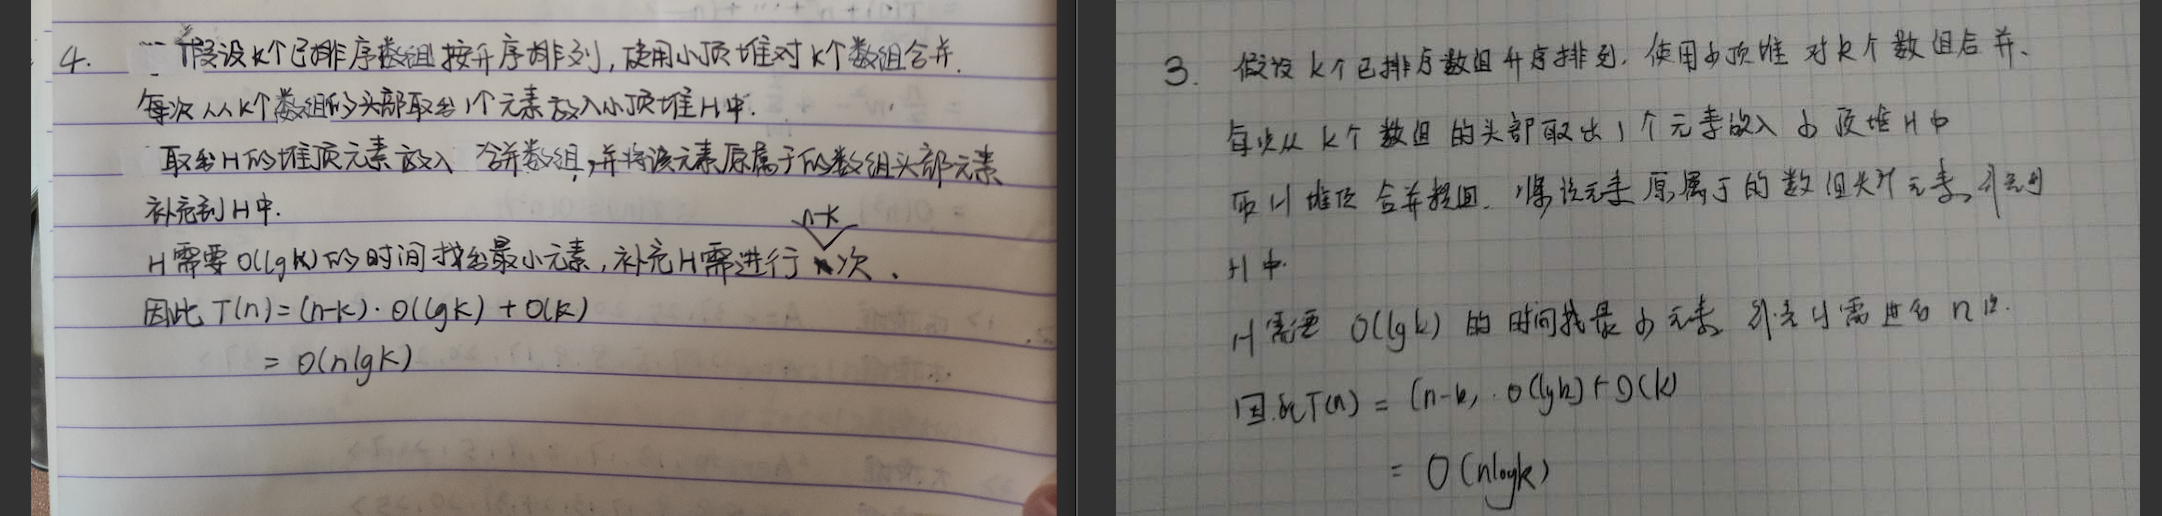 4. 假设K个已排序数组按升序排列,使用小顶堆对K个数组合并.
每次从K个数组的头部取出1个元素放入小顶堆H中.
取出H的堆顶元素放入 合并数组,并将该元素原属于的数组头部元素
补充到H中.
n-k
H需要O(lgk)的时间找出最小元素,补充H需进行 次.
因此 T(n)=(n-k)·O(lgk)+O(k)
= O(nlgk)
3. 假设k个已排序数组升序排列.使用小顶堆 对k个数组合并.
每次从 k个数组的头部取出1个元素放入小顶堆H中
取H堆顶 合并数组. 将该元素原属于的数组头个元素
H中.
H需要 O(lgk) 的时间找最小元素 补充H需进行n次.
因此T(n) = (n-k)·O(lgk)+O(k)
= O(nlogk)